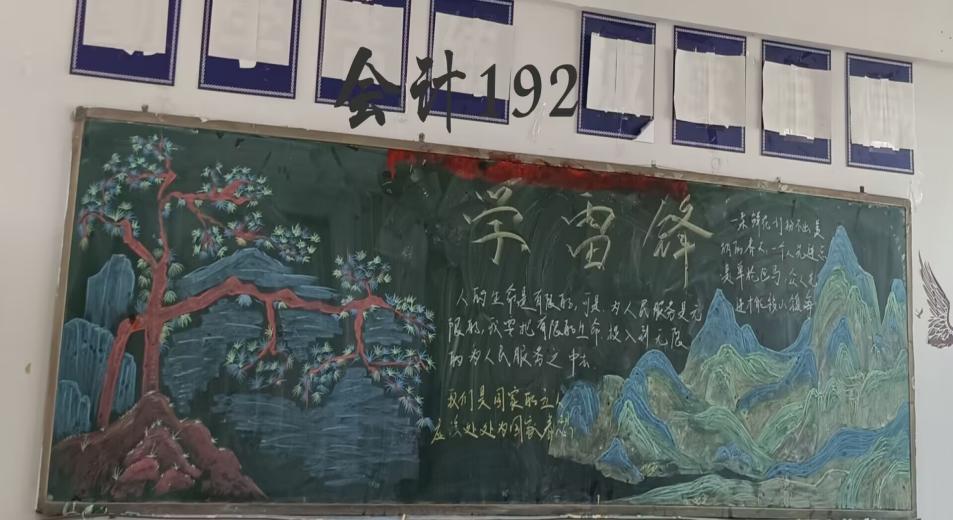 会计192
学雷锋
人的生命是有限的,可是,为人民服务是无
限的,我要把有限的生命,投入到无限
的为人民服务之中去
我们是国家的主人
应该处处为国家着想
一朵鲜花打扮不出美
丽的春天,一个人先进总
是单枪匹马,众人先
进才能移山填海